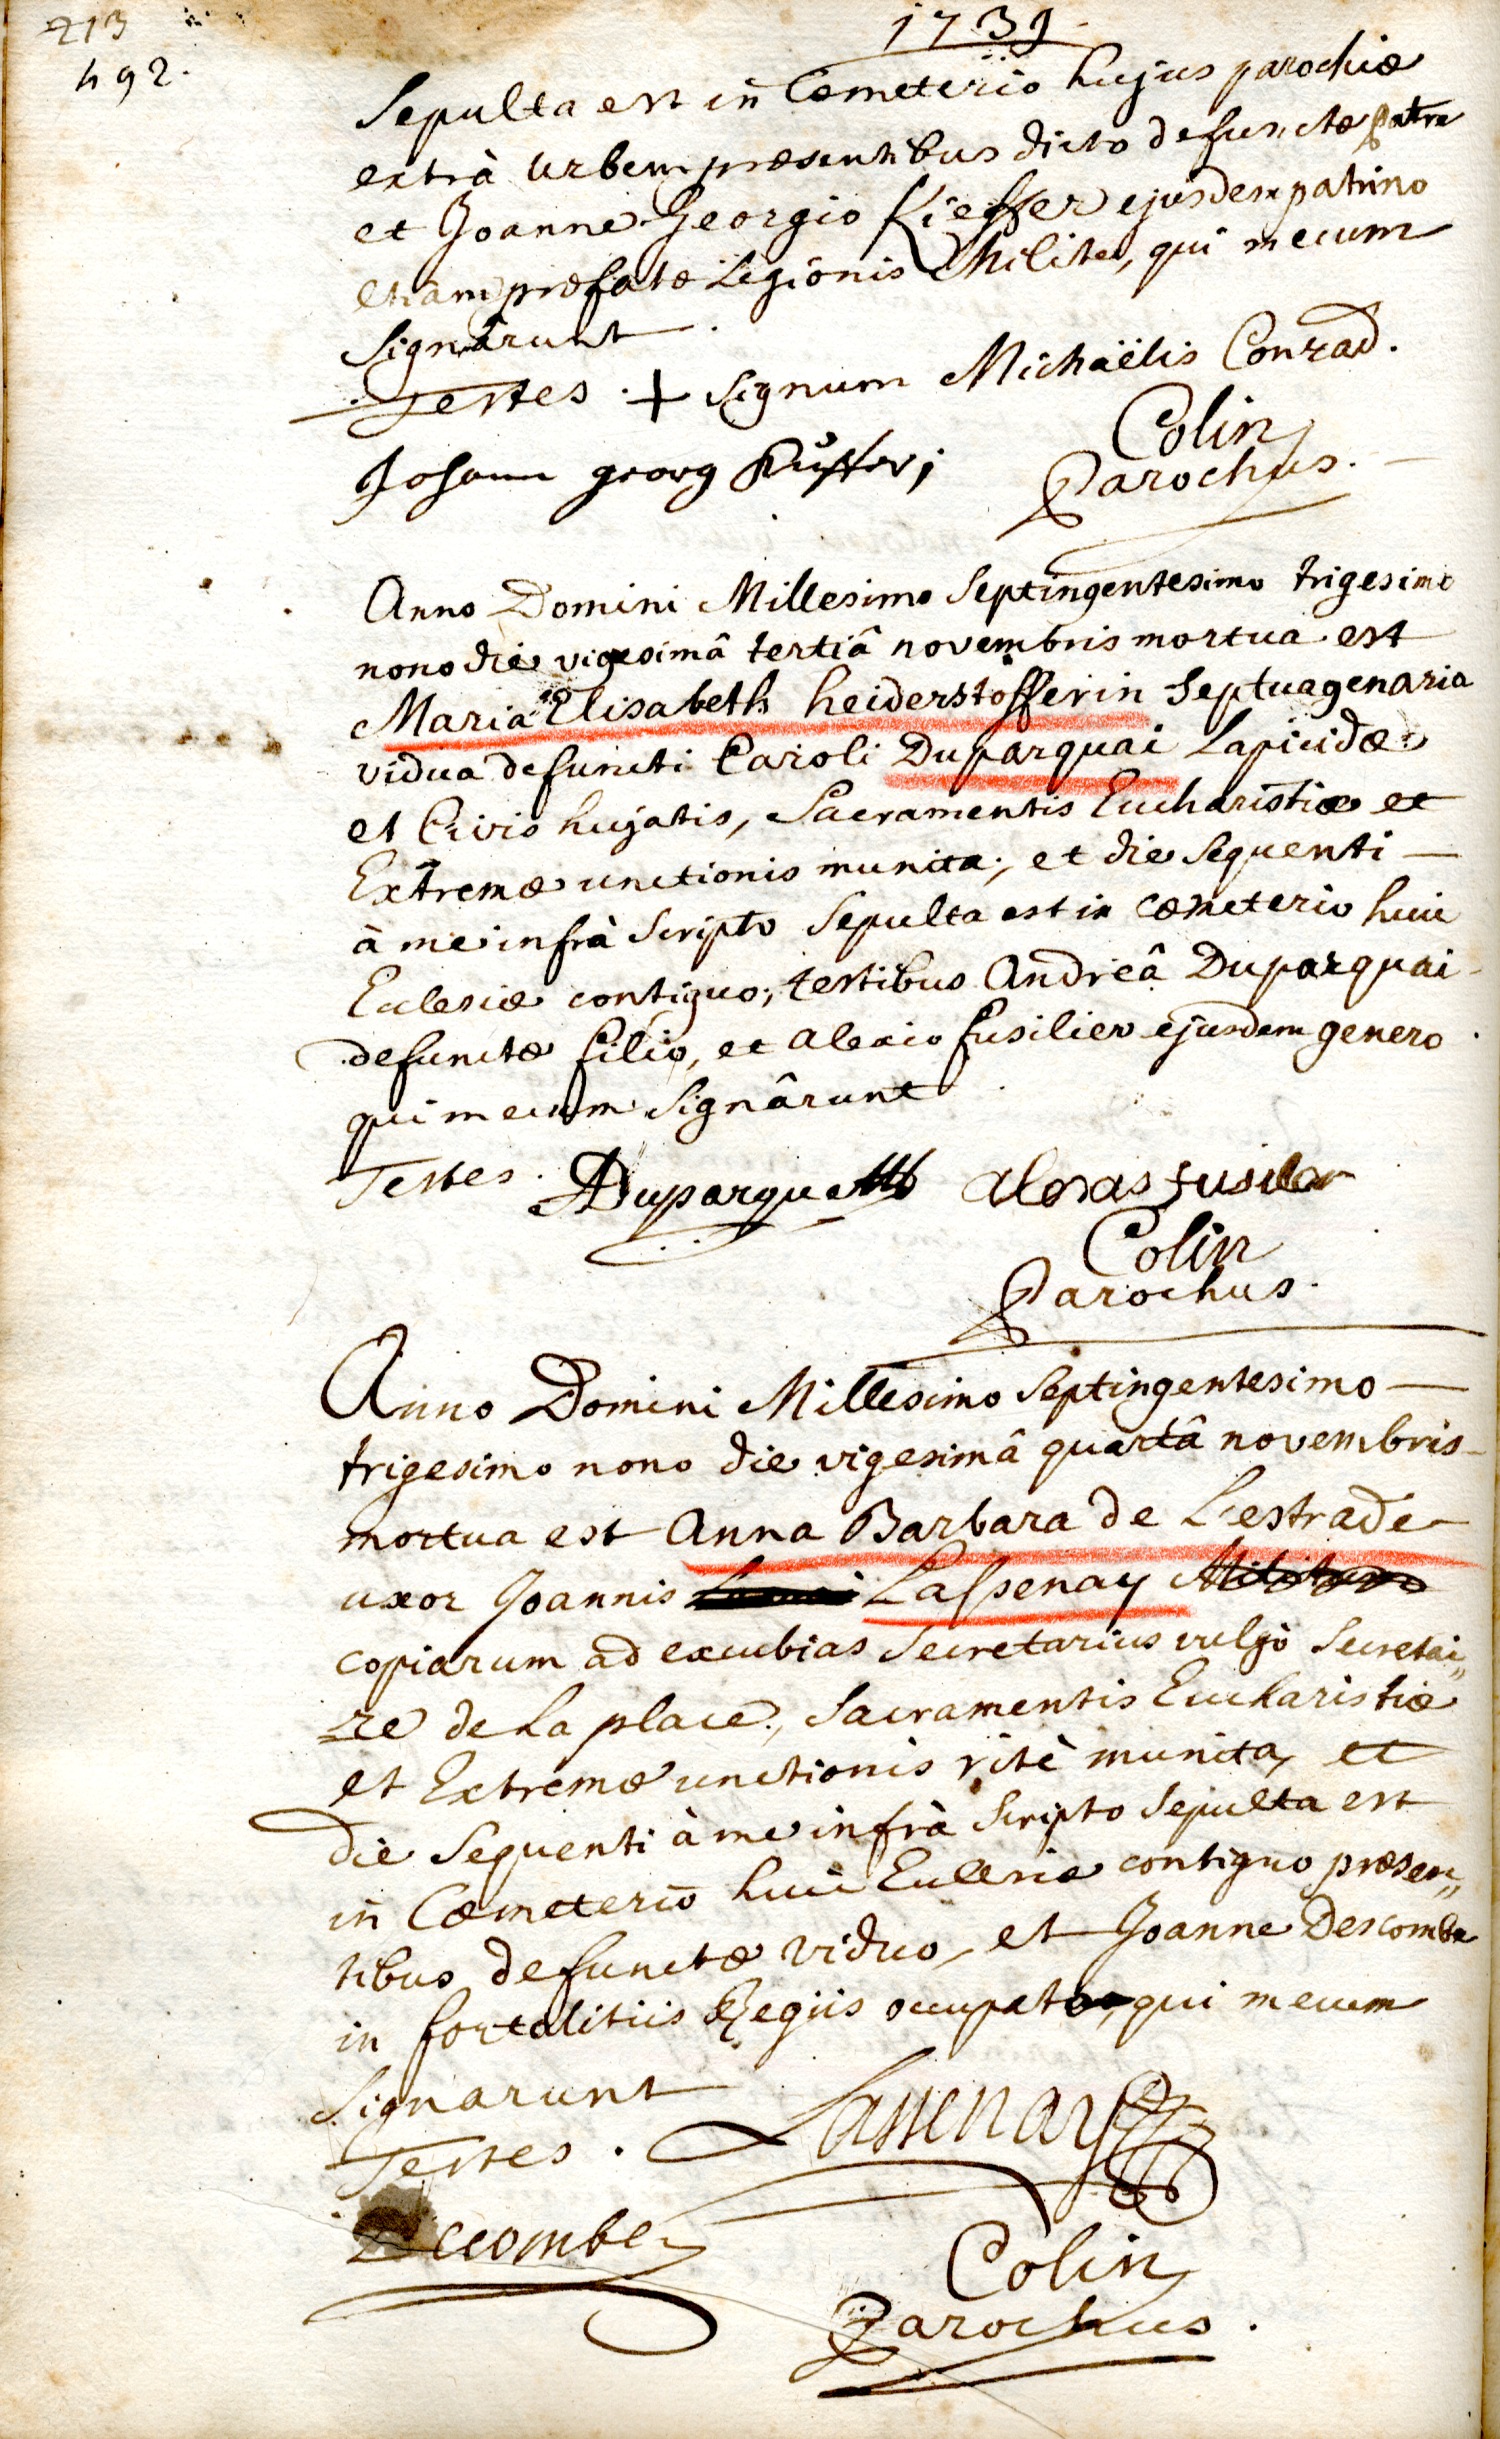 213
492.
1739
Sepulta est in Cœmeterio hujus parochiæ
extrà Urbem præsentibus dicto defunctæ patre
et Joanne Georgio Kieffer ejusdem patrino
etiam præfatæ Legionis Milite, qui mecum
Signârunt
Testes. + Signum Michaëlis Conrad.
Johann georg
Colin
Parochus.
Anno Domini Millesimo Septingentesimo trigesimo
nono die vigesimâ tertiâ novembris mortua est
Maria Elisabeth heiderstofferin Septuagenaria
vidua defuncti Caroli Duparquai Lapicidæ
et Civis hujatis, Sacramentis Eucharistiæ et
Extremæ unctionis munita; et die Sequenti
à me infrà Scripto Sepulta est in cœmeterio huic
Eclesiæ contiguo; testibus Andreâ Duparquai
defunctæ filio, et alexio fusilier ejusdem genero
qui mecum Signârunt
Testes. ADuparquet alexas fusiler
Colin
Parochus.
Anno Domini Millesimo Septingentesimo
trigesimo nono die vigesimâ quartâ novembris
mortua est Anna Barbara de Lestrade
uxor Joannis Lassenay
copiarum ad excubias Secretarius vulgò Secretai,,
re de La place, Sacramentis Eucharistiæ
et Extremæ unctionis ritè munita, et
die Sequenti à me infrà Scripto Sepulta est
in Cœmeterio huic Ecclesiæ contiguo præsen,,
tibus defunctæ viduo, et Joanne Descombe
in fortalitiis Regiis occupato, qui mecum
Signarunt
Testes. Lassenay
Decombe
Colin
Parochus.